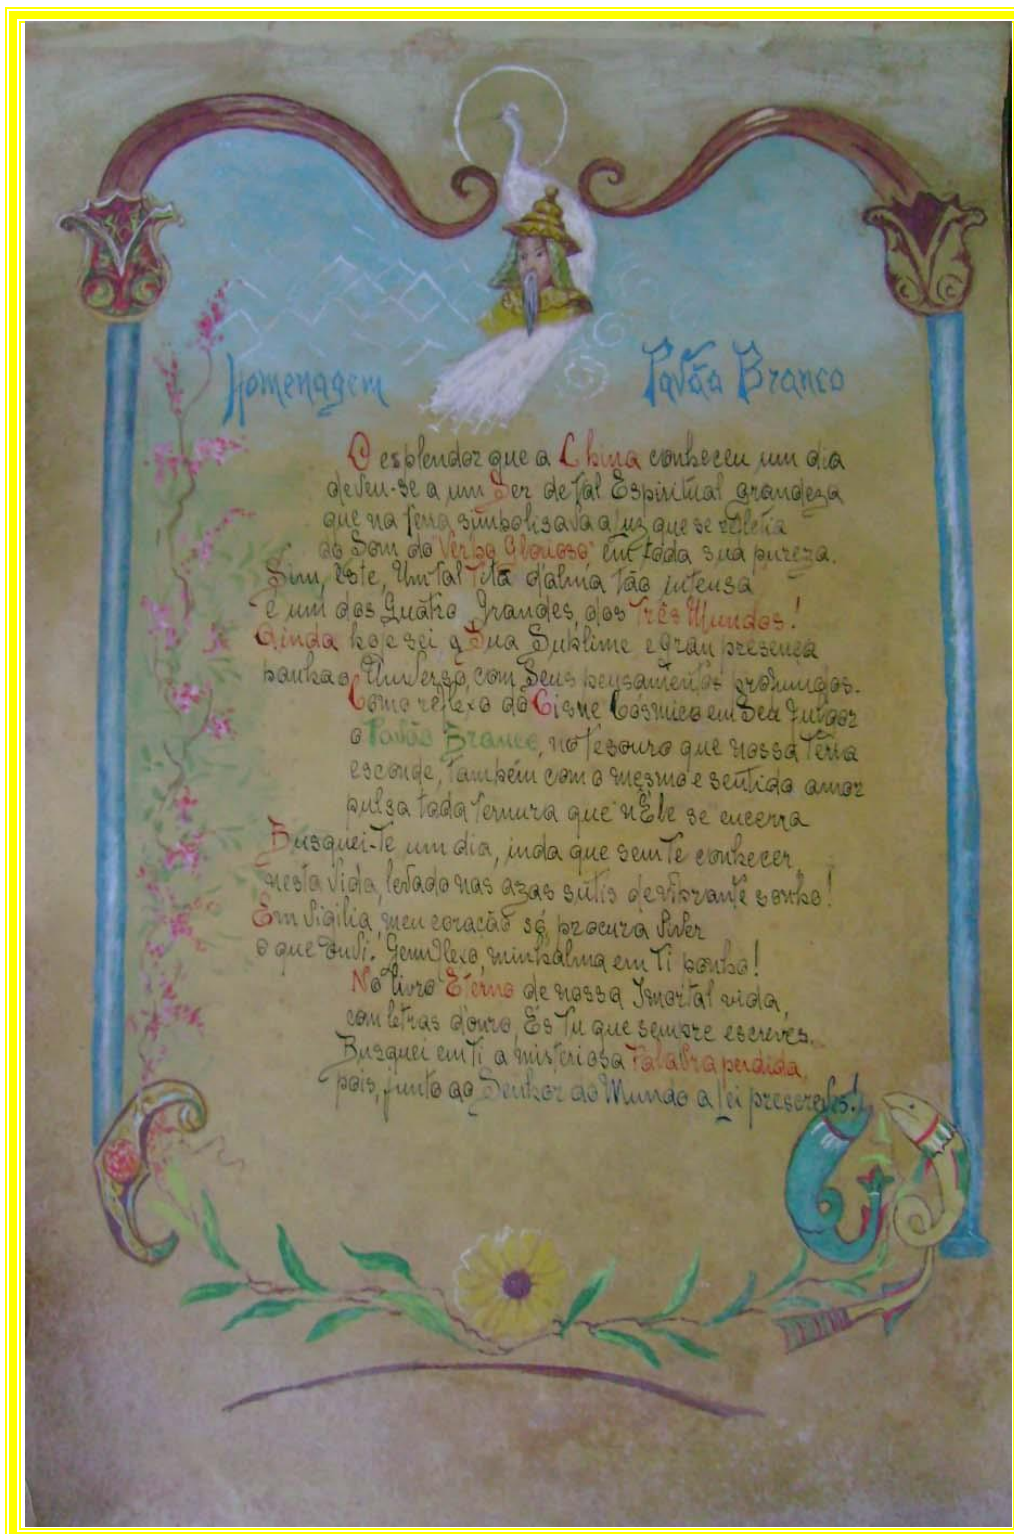 Homenagem Pavão Branco
O esplendor que a China conheceu um dia
deveu-se a um Ser de tal Espiritual grandeza
que na terra simbolisava a luz que se refletia
do Som do "Verbo Glorioso" em toda sua pureza.
Sim, este, Um tal Titã d'alma tão intensa
é um dos Quatro Grandes, dos Três Mundos!
Ainda hoje sei q Sua Sublime e grau presença
banha o Universo, com Seus pensamentos profundos.
Como reflexo do Cisne Cósmico em Seu fulgor
o Pavão Branco, no tesouro que nossa Terra
esconde, também com o mesmo e sentido amor
pulsa toda ternura que n'Ele se encerra
Busquei-Te um dia, inda que sem Te conhecer,
nesta vida, levado nas azas sutis de vibrante sonho!
Em vigilia, meu coração só procura viver
o que ouvi. Genuflexo, minhalma em Ti ponho!
No livro Eterno de nossa Imortal vida,
com letras d'ouro, És Tu que sempre escreves.
Busquei em Ti a misteriosa Palabra perdida,
pois, junto ao Senhor do Mundo a Lei prescreves!